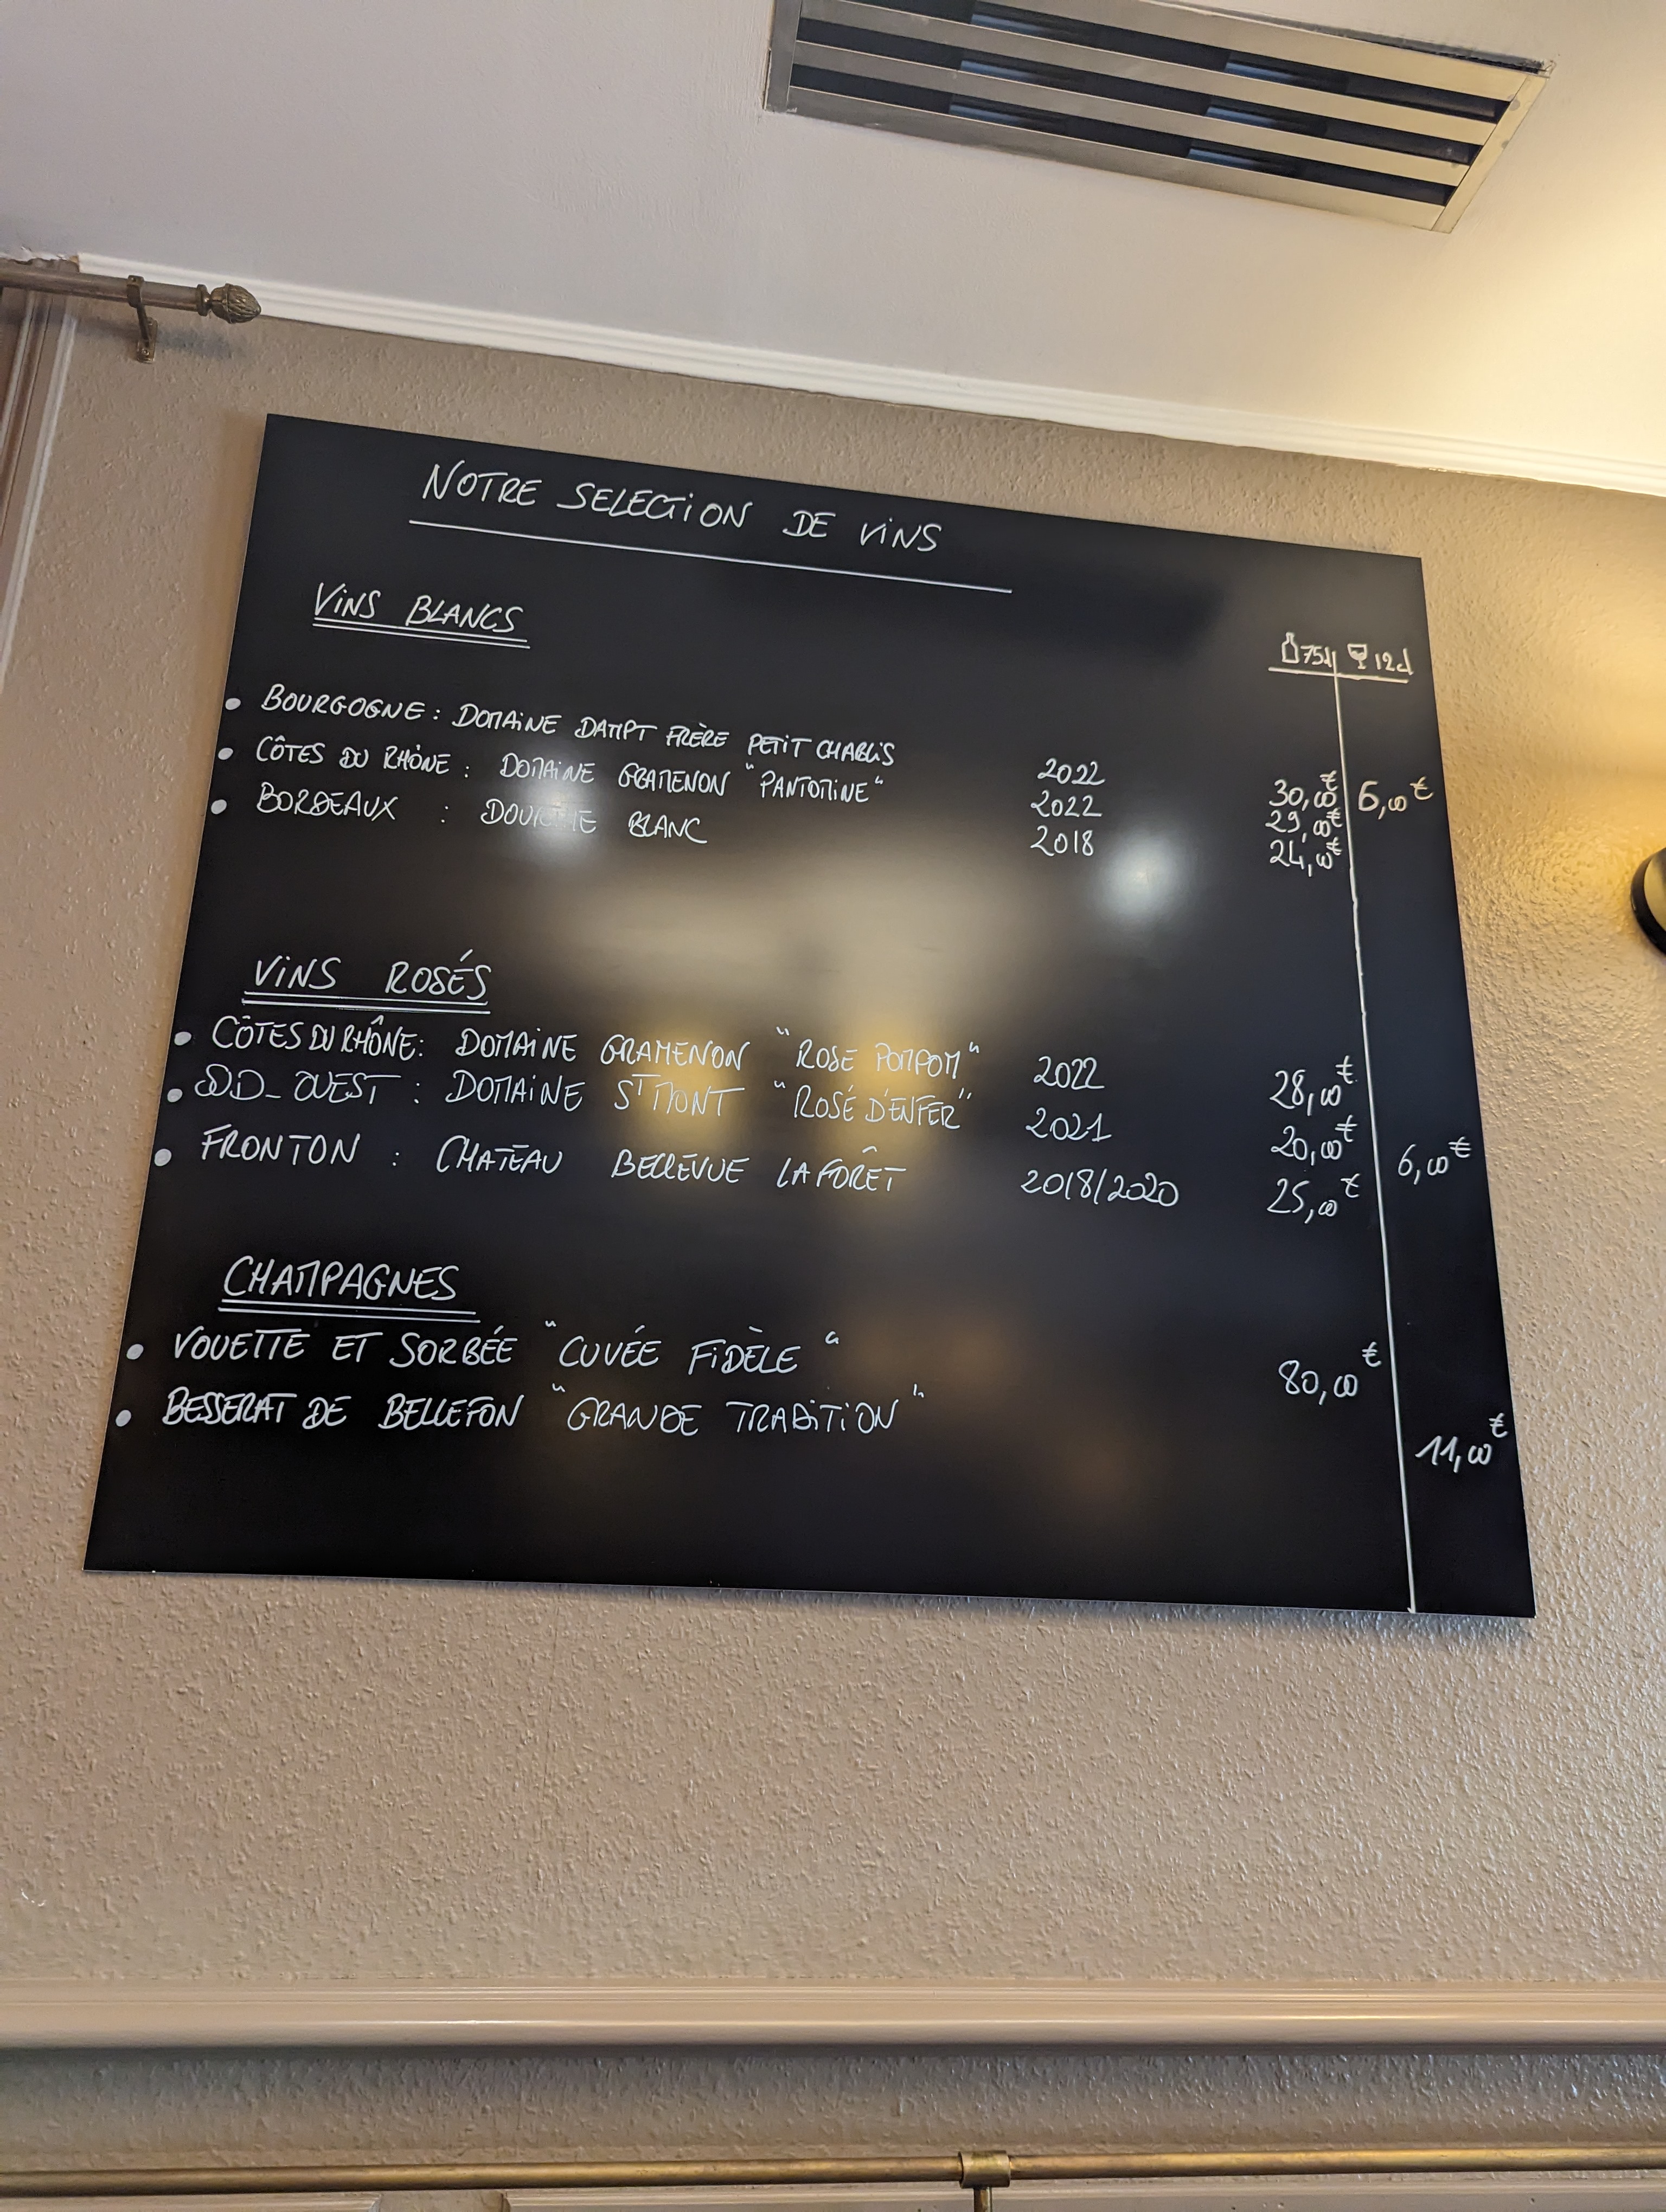 NOTRE SELECTION DE VINS
VINS BLANCS
75cl 12cl
• BOURGOGNE : DOMAINE DAMPT FRÈRE PETIT CHABLIS 2022 30,00€ 6,00€
• CÔTES DU RHÔNE : DOMAINE GRAMENON "PANTOMINE" 2022 29,00€
• BORDEAUX : DOURTHE BLANC 2018 24,00€
VINS ROSÉS
• CÔTES DU RHÔNE : DOMAINE GRAMENON "ROSE POMPOM" 2022 28,00€
• SUD-OUEST : DOMAINE ST MONT "ROSÉ D'ENFER" 2021 20,00€ 6,00€
• FRONTON : CHATEAU BELLEVUE LA FORÊT 2018/2020 25,00€
CHAMPAGNES
• VOUETTE ET SORBÉE "CUVÉE FIDÈLE" 80,00€
• BESSERAT DE BELLEFON "GRANDE TRADITION" 11,00€